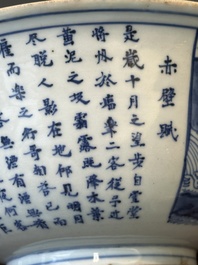 赤壁賦
是歲十月之望步自雪堂
將歸於臨皋二客從予過
黃泥之坂霜露既降木葉
盡脫人影在地仰見明月
顧而樂之行歌相答已而
無酒有